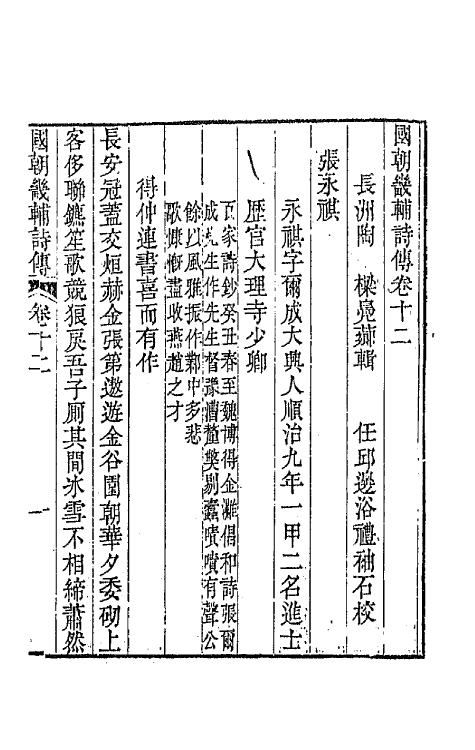 國朝畿輔詩傳卷十二
長洲陶 樑鳧薌輯 任邱邊浴禮袖石校
張永祺
永祺字爾成大興人順治九年一甲二名進士
歷官大理寺少卿
百家詩鈔癸丑春至魏博得金灘倡和詩張爾
成先生作先生督豫漕釐獘剔蠹嘖嘖有聲公
餘以風雅振作鄴中多悲
歌慷慨盡收燕趙之才
得仲連書喜而有作
長安冠蓋交烜赫金張第遨遊金谷園朝華夕委砌上
客侈聯鑣笙歌競狼戾吾子厠其間氷雪不相締蕭然
國朝畿輔詩傳 卷十二 一